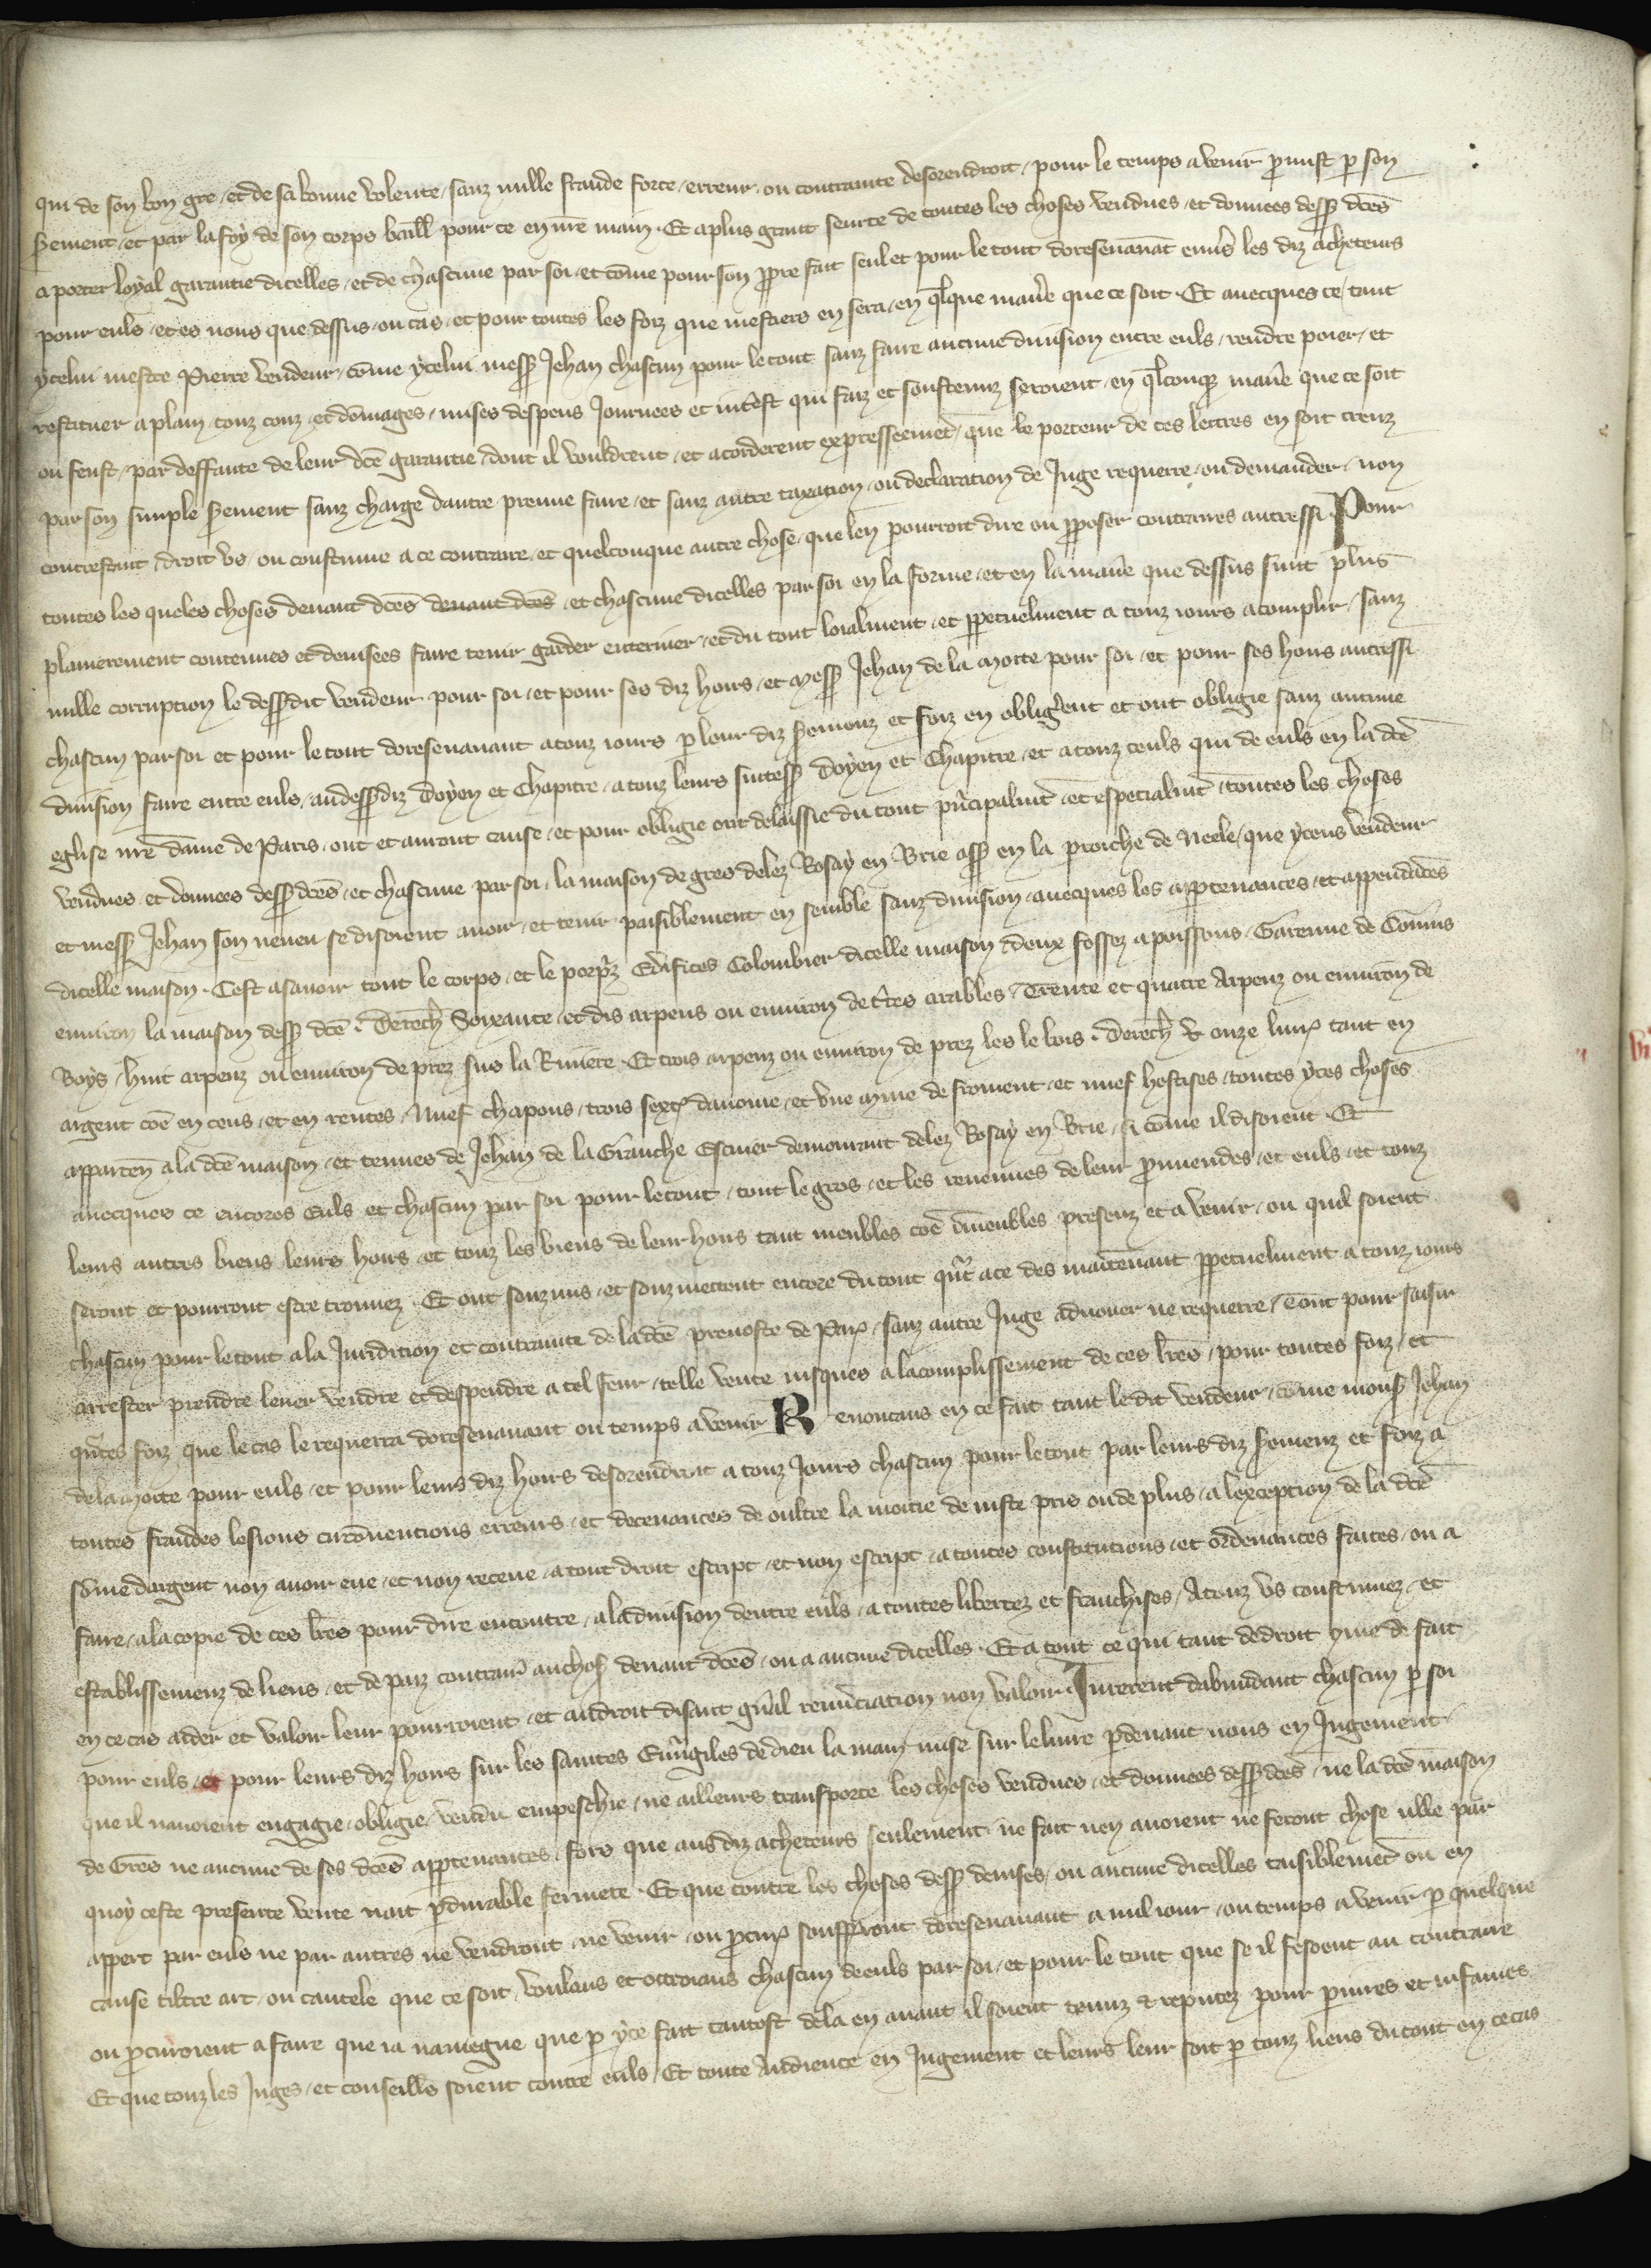 qui de son bon gre / et de sa bonne volente / sanz nulle fraude force / erreur / ou contrainte desorendroit / pour le temps avenir promist p son
serement / et par la foy de son corps baill pour ce en nre main · Et a plus grant seurte de toutes les choses vendues / et donnees dess dces
a porter loyal garantie dicelles / et de chascune par soi / et come pour son ppre fait seul et pour le tout doresenavat envs les diz acheteurs
pour euls / et es nons que dessus / ou cas / et pour toutes les foiz que mestiers en sera / en qlque manie que ce soit · Et avecques ce / tant
ycelui mestre Pierre vendeur / come ycelui mess Jehan chascun pour le tout sanz faire aucune division entre euls / rendre poier / et
restituer a plain / touz couz / et domages / mises despens Journees et intest qui faiz et soustenuz seroient / en qlconq manie que ce soit
ou feust / par deffaute de leur dce garantie / dont il vouldrent / et acorderent expresseemet / que le porteur de ces lettres en soit creuz
par son simple serement sanz charge dautre preuve faire / et sanz autre taxation / ou declaration de Juge requerre / ou demander / non
contrestant / droit us / ou coustume a ce contraire / et quelconque autre chose / que len pourroit dire ou pposer contraires autressi · Pour
toutes les queles choses devant dces devant dces / et chascune dicelles par soi en la forme / et en la manie que dessus sunt plus
planierement contenues et devisees faire tenir garder enteriner / et du tout loialment / et ppetuelment a touz iours acomplir / sanz
nulle corruption le dessdit vendeur pour soi / et pour ses diz hoirs / et mess Jehan de la Motte pour soi / et pour ses hoirs autressi
chascun par soi et pour le tout doresenavant a touz iours p leur diz seremenz et foiz en obligent et ont obligie sanz aucune
division faire entre euls / audessdiz Doyen et Chapitre / a touz leurs success Doyen et Chapitre / et a touz ceuls qui de euls en la dce
eglise nre dame de Paris / ont et auront cause / et pour obligie ont delaissie du tout pncipalmt / et especialmt / toutes les choses
vendues et donnees dess dces / et chascune par soi / la maison de gres delez Rosay en Brie ass en la proiche de Neele / que yceus vendeur
et mess Jehan son neveu se disoient avoir / et tenir paisiblement en semble sanz division / avecques les apptenances / et appendaces
dicelle maison · Cest asavoir tout le corps / et le porpz Edifices Colombier dicelle maison / deux fossez a poissons / Garenne de Connis
environ la maison dess dce · Derech Soixante / et dis arpens ou environ de tres arables / Trente et quatre Arpenz ou environ de
Boys / huit arpenz ou environ de prez sus la Riviere · Et trois arpenz ou environ de prez les le bois · Derech & onze livr tant en
argent coe en cens / et en rentes / Nuef chapons / trois sext davoine / et une mine de froment / et nuef hostises / toutes yces choses
apparten a la dce maison / et tenues de Jehan de la Granche Escuier demourant delez Rosay en Brie / si come il disoient · Et
avecques ce encores euls et chascun par soi pour le tout / tout le gros / et les revenues de leur provendes / et euls / et touz
leurs autres biens leurs hoirs / et touz les biens de leur hoirs tant meubles coe nmeubles presenz et avenir / ou quil soient
seront et pourront estre trouvez · Et ont souzmis / et souz mettent encore du tout qnt a ce des maitenant ppetuelment a touz iours
chascun pour le tout a la Juridition et contrainte de la dce prevoste de Par / sanz autre Juge advouer ne requerre / dont pour saisir
arrester prendre lever vendre et despendre a tel feur / telle vente iusques a lacomplissement de ces lres / pour toutes foiz / et
qntes foiz que le cas le requerra doresenavant ou temps avenir Renoncans en ce fait tant le dit vendeur / come mons Jehan
de la Motte pour euls / et pour leurs diz hoirs desorendroit a touz Jours chascun pour le tout par leurs diz seremenz et foiz a
toutes fraudes lesions circonventions erreurs / et decevances de oultre la moitie de iuste pris ou de plus / a lexception de la dce
some dargent non avoir eue / et non receue / a tout droit escript / et non escript / a toutes constitutions / et ordenances faites / ou a
faire / a la copie de ces lres pour dire encontre / a la division dentre euls / a toutes libertez et franchises / A touz us coustumez / et
establissemenz de liens / et de paiz contrair auchos devant dces / ou a aucune dicelles · Et a tout ce qui tant de droit come de fait
en ce cas aider et valoir leur pourroient / et au droit disant gnal renuciation non valoir · Jurerent dabundant chascun p soi
pour euls / et pour leurs diz hoirs sur les saintes Euvngiles de dieu la main mise sur le livre pdevant nous en Jugement
que il navoient engagie / obligie / vendu empeschie / ne ailleurs transporte les choses vendues / et donnees dess dces / ne la dce maison
de Gres ne aucune de ses dces apptenances / fors que aus diz acheteurs seulement · ne fait nen avoient ne feront chose nlle par
quoy ceste presente vente nait pdurable fermete · Et que contre les choses dess devises / ou aucune dicelles taisiblemet ou en
appert par euls ne par autres ne vendront / ne venir / ou pcur soufferont doresenavant a nul iour / ou temps avenir p quelque
cause tiltre art / ou cautele que ce soit / Voulans et ottroians chascun de euls par soi / et pour le tout que se il fesoient au contraire
ou pcuroient a faire que ia naviegne que p yce fait tantost dela en avant il soient tenuz & reputez pour pariures et infames
Et que touz les Juges / et conseills soient contre euls / Et toute Audience en Jugement et leurs leur soit p touz liens du tout en ce cas